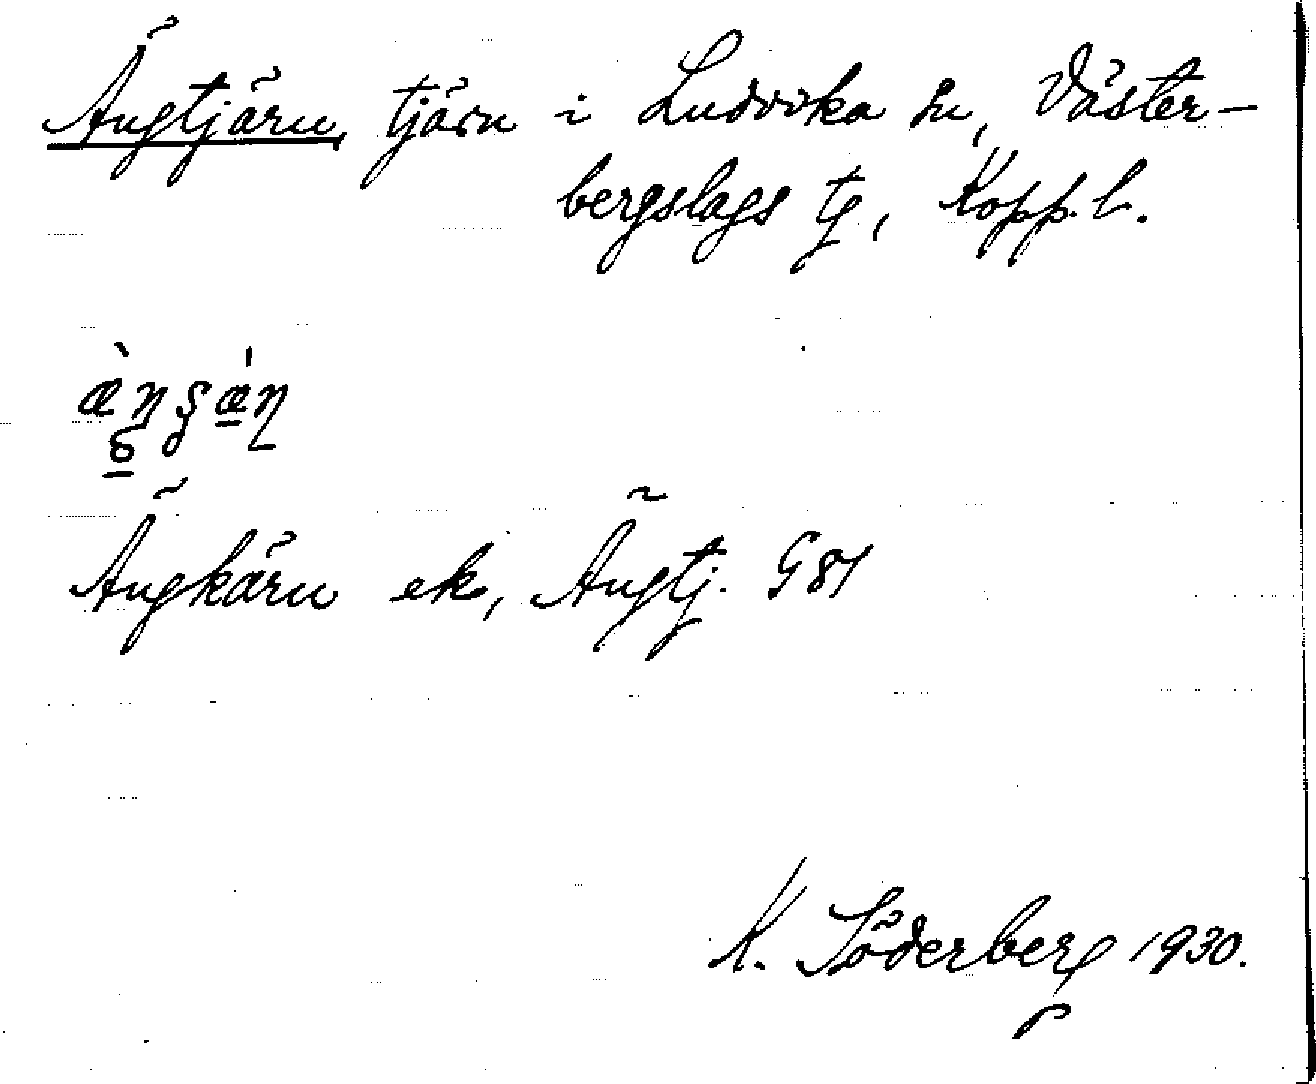 Ängtjärn, tjärn i Ludvika sn, Väster-
bergslags tg, Kopp. l.
Ängkärn ek, Ängtj. G 81
K. Söderberg 1930.